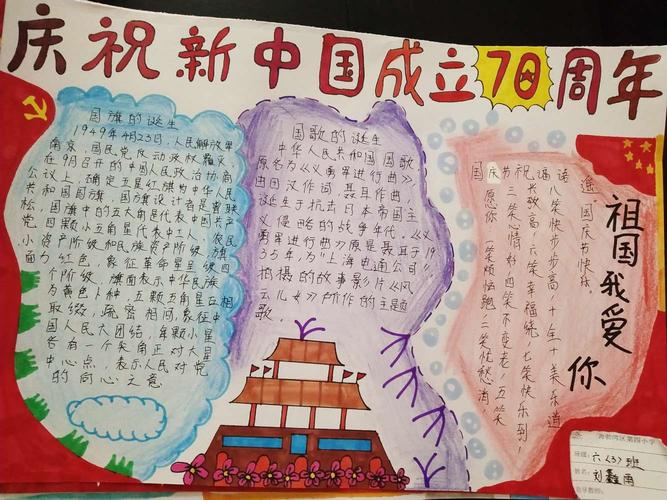 庆祝新中国成立70周年
国旗的诞生
1949年4月23日,人民解放军
南京,国民党反动政权覆灭
在9月召开的中国人民政治协商
会议上,确定五星红旗为中华人民
共和国国旗,国旗设计者是曾联
松,国旗中的五大角星代表中国共产
党,四颗小五角星代表中工人、农民
小资产阶级和民族资产阶级,旗
面为红色,象征革命星呈现四
个阶级,旗面表示中华民族
为黄色人种,五颗五角星互相
取缀,疏密相间,象征中
国人民大团结,每颗小星
各有一个尖角正对大星
中心点,表示人民对党
的向心之意
国歌的诞生
中华人民共和国国歌
原名为《义勇军进行曲》
曲田汉作词,聂耳作曲,
诞生于抗击日本帝国主
义侵略的战争年代,《义
勇军进行曲》原是聂耳于19
35年,为"上海电通公司"
拍摄的故事影片《风
云儿女》所作的主题
歌。
遥,国庆节快乐
八笑快步步高,十全十美乐逍
兴致高,六笑幸福绕,七笑快乐到,
国庆节三笑心情好,四笑不变老,五笑
愿你,一笑烦恼跑,二笑忧愁消,
祖国我爱你
海勃湾区第四小学
班级:六(3)班
姓名:刘鑫雨
指导教师: